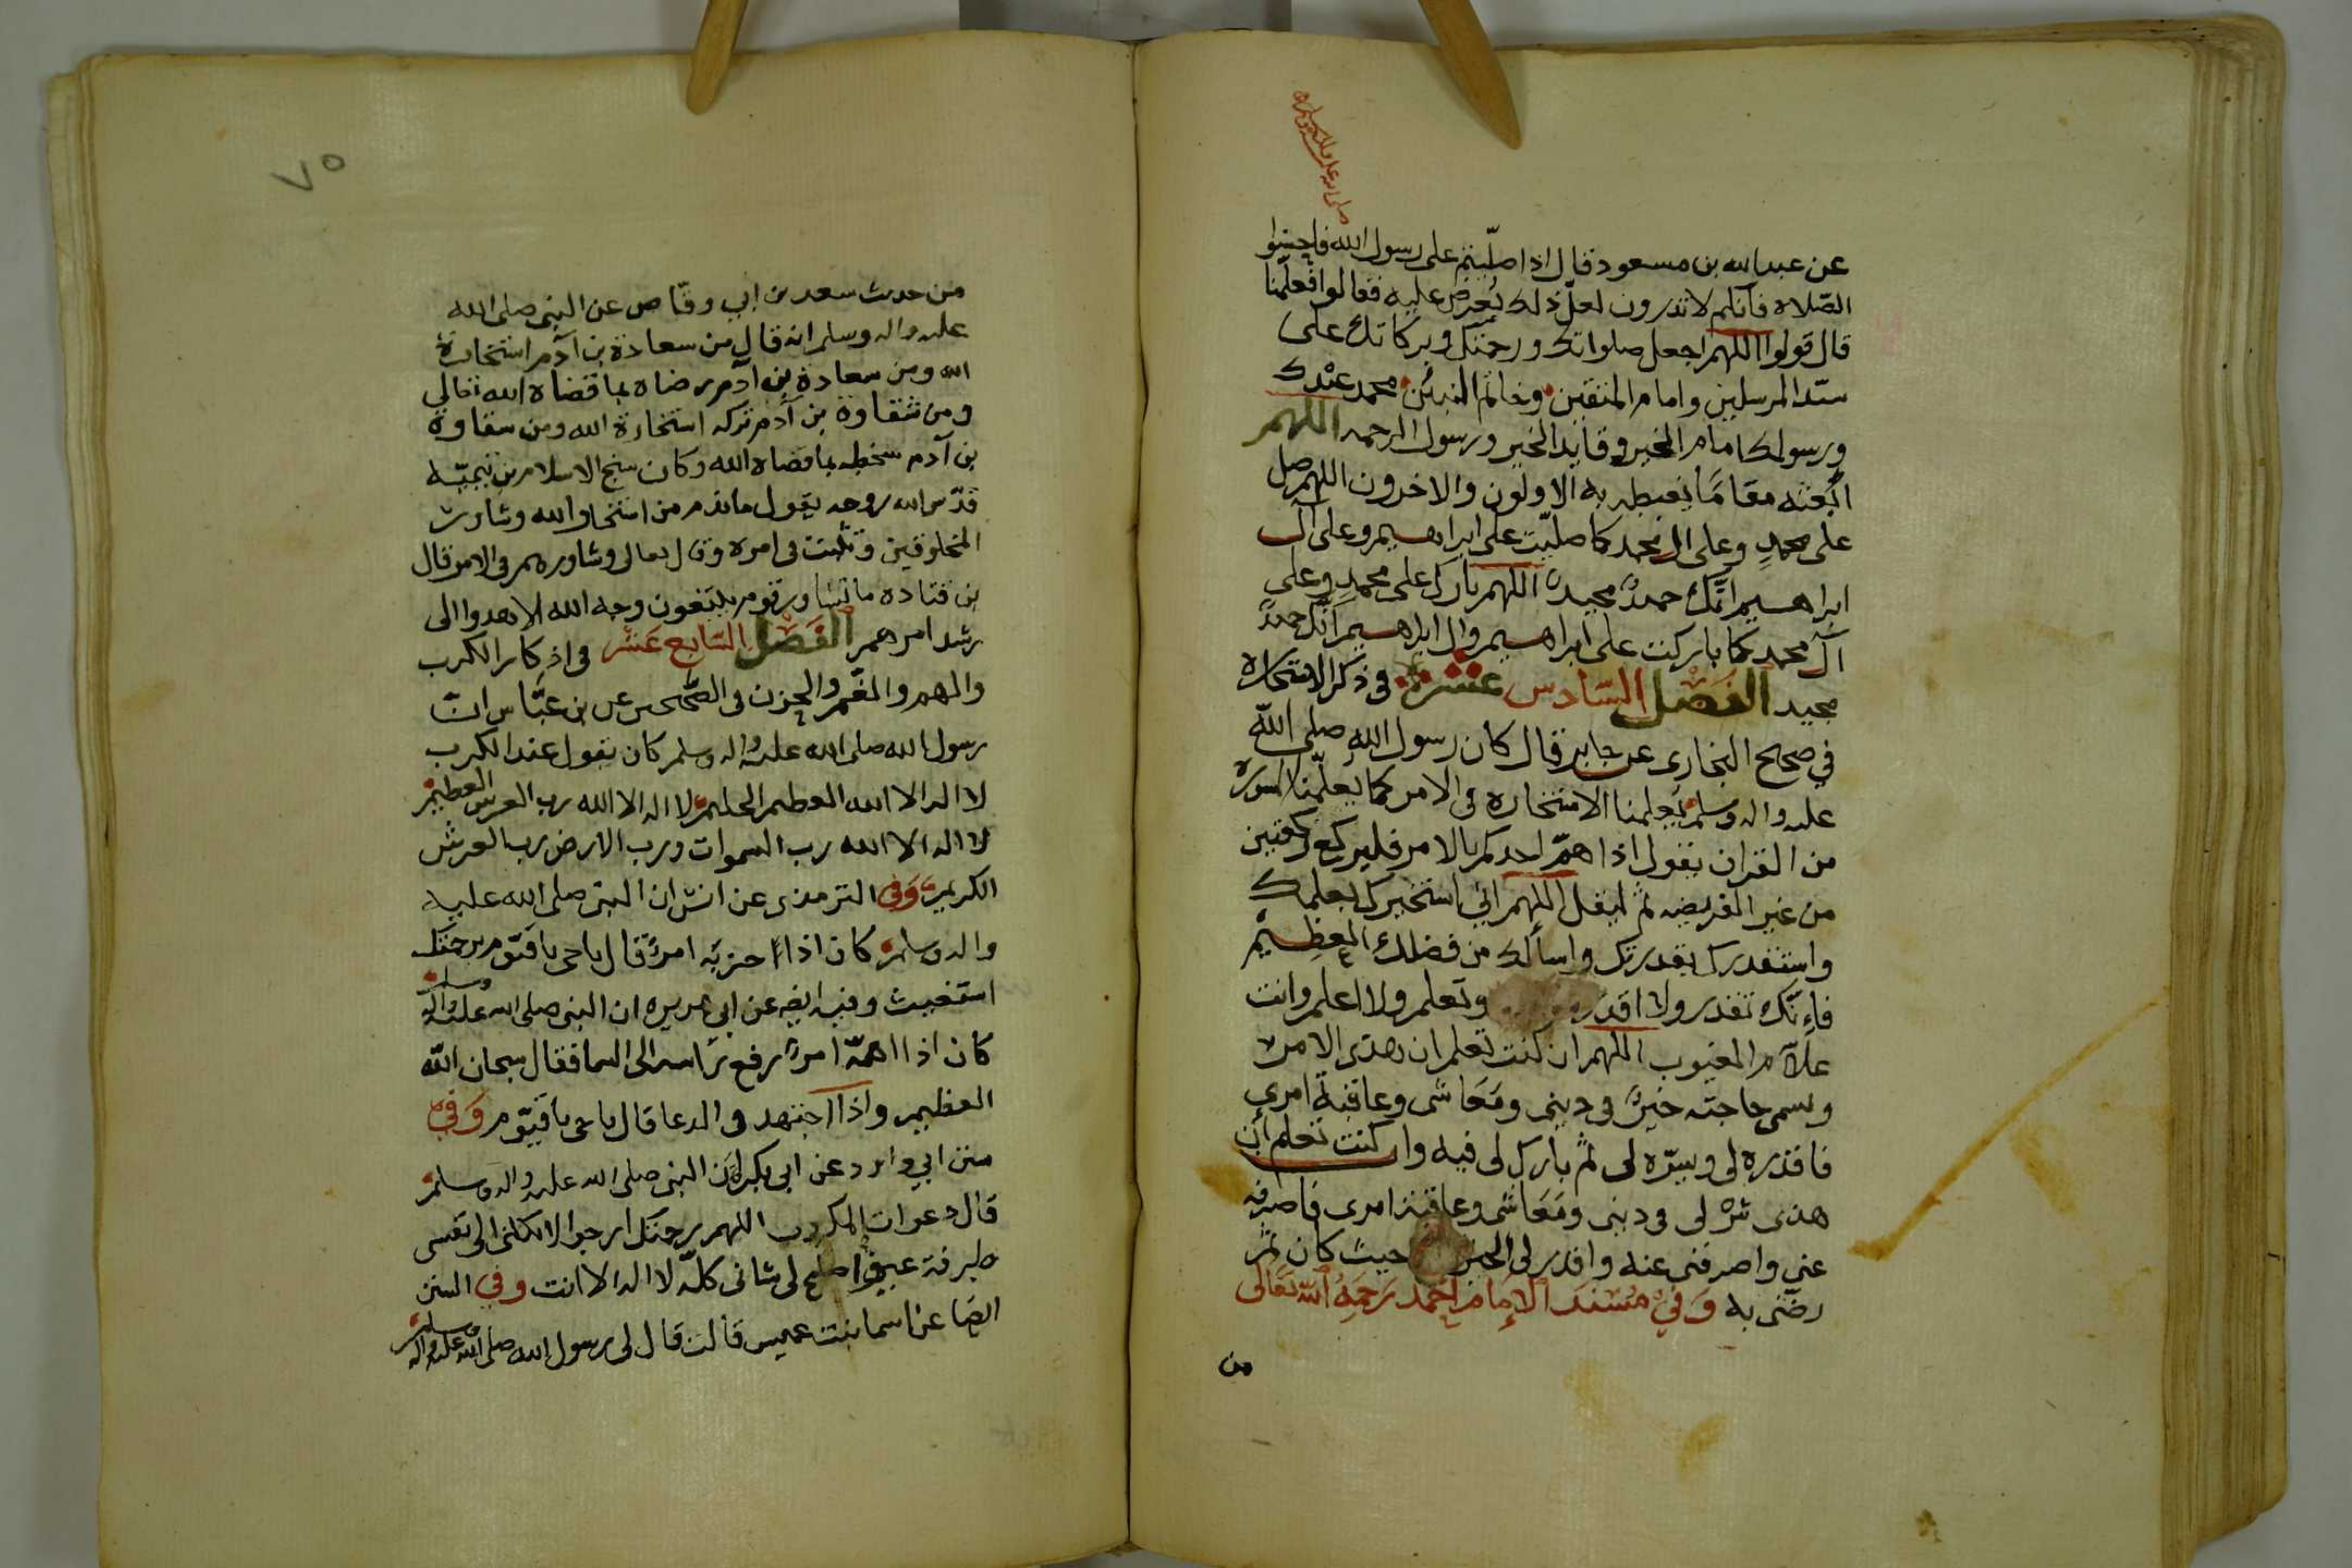 عن عبدالله بن مسعود قال اذا صلّيتم على رسول الله فاحسنوا
الصّلاه فانكم لا تدرون لعلّ ذلك يُعرض عليه فقالوا فعلّمنا
قال قولوا اللهم اجعل صلواتك ورحمتك وبركاتك على
سيّد المرسلين وامام المتقين وخاتم النبيّن محمد عبدك
ورسولك امام الخير وقايد الخير ورسول الرحمه اللهم
ابعثه مقامًا يغبطه به الاولون والاخرون اللهم صل
على محمدٍ وعلى ال محمد كما صليّت على ابراهيم وعلى آل
ابراهيم انّك حميدٌ مجيدٌ اللهم بارك على محمدٍ وعلى
آل محمد كما باركت على ابراهيم وال ابراهيم انّك حميدٌ
مجيد الفَصْل السَّادس عشر في ذكر الاستخاره
في صحيح البخارى عن جابر قال كان رسول الله صلى الله
عليه واله وسلم يُعلمنا الاستخاره فى الامر كما يعلّمنا السوره
من القران يقول اذا همّ احدكم بالامر فليركع ركعتين
من غير الفريضه ثم ليقل اللهم اني استخيرك بعلمك
واستقدرك بقدرتك واسألك من فضلك العظيم
فإنّك تقدر ولا اقدر وتعلم ولا اعلم وانت
علاّم الغيوب اللهم ان كنت تعلم ان هذى الامر
ويسمى حاجته خيرٌ فى دينى ومَعَاشى وعاقبة امري
فاقدره لى ويسّره لى ثم بارك لى فيه وان كنت تعلم أن
هذى شرٌ لى فى دينى ومَعَاشى وعاقبة امرى فاصرفه
عني واصرفنى عنه واقدر لى الخير حيث كان ثم
رضّنى به وَفيْ مُسْنَد الإمام احْمد رَحِمَهُ الله تَعَالى
من
٧٥
من حديث سعد بن ابي وقّاص عن النبى صلى الله
عليه واله وسلم انه قال من سعادة بن آدم استخارة
الله ومن سعادة بن ادم رضاه بما قضاه الله تعالى
ومن شقاوة بن آدم تركه استخارة الله ومن شقاوة
بن آدم سخطه بما قضاه الله وكان شيخ الاسلام بن تيميّه
قدّس الله روحه يقول ما ندم من استخار الله وشاور
المخلوقين وتثبت فى امره وقال تعالى وشاورهم فى الامر قال
بن قتاده ما تشاور قوم يبتغون وجه الله الا هدوا الى
رشد امرهم الفَصْل السَّابع عَشر فى اذكار الكرب
والهم والغمّ والحزن فى الصّحيحين عن بن عبَّاس انّ
رسول الله صلى الله عليه واله وسلم كان يقول عند الكرب
لا اله الا الله العظيم الحليم لا اله الا الله رب العرش العظيم
لا اله الا الله رب السموات ورب الارض رب العرش
الكريم وَفى الترمذى عن انس ان النبى صلى الله عليه
واله وسلم كان اذا احزبَه امرٌ قال ياحى ياقيّوم برحمتك
استغيث وفيه ايضا عن ابى هريره ان النبى صلى الله عليه واله وسلم
كان اذا اهمّه امرٌ رفع راسه الى السما فقال سبحان الله
العظيم واذا اجتهد فى الدعا قال ياحى ياقيّوم وَفيْ
سنن ابي داود عن ابى بكره ان النبى صلى الله عليه واله وسلم
قال دعوات المكروب اللهم رحمتك ارجوا لا تكلنى الى نفسى
طرفة عين واصلح لى شانى كلّه لا اله الا انت وفي السنن
ايضًا عن اسما بنت عميس قالت قال لى رسول الله صلى الله عليه واله وسلم